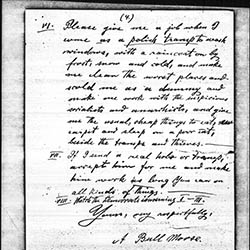 (4)
VI. Please give me a job when I
come as a polish tramp to wash
windows, with a raincoat on by
frost, snow and cold, and make
me clean the worst places and
scold me as a dummy and
make me work with the suspicious
socialists and anarchists, and give
me the usual cheap things to eat,
carpet and sleep on a poor cot,
beside the tramps and thieves.
VII. If I send a real hobo or tramp,
accept him for me and make
him work as long you can on
all kinds of things.
VIII. Watch the Democrats concerning I - III.
Yours, very respectfully:
A Bull Moose.